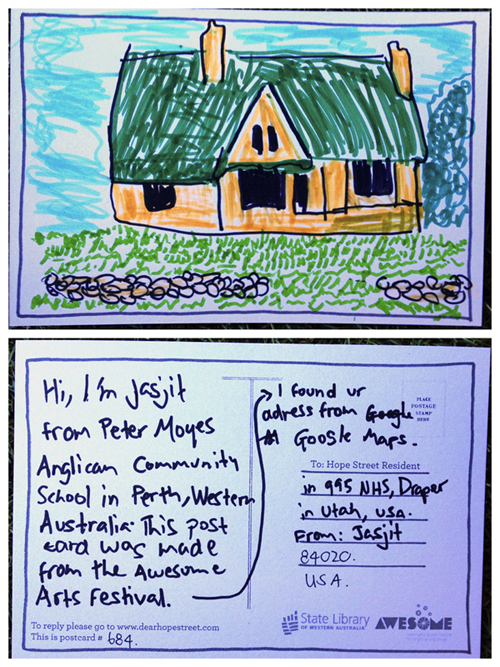 Hi, I'm Jasjit
from Peter Moyes
Anglican Community
School in Perth, Western
Australia. This post
card was made
from the Awesome
Arts Festival.
To reply please go to www.dearhopestreet.com
This is postcard # 684.
I found ur
adress from Google
Google Maps.
PLACE
POSTAGE
STAMP
HERE
To: Hope Street Resident
in 995 NHS, Draper
in Utah, USA.
From: Jasjit
84020.
USA.
State Library
OF WESTERN AUSTRALIA
AWESOME